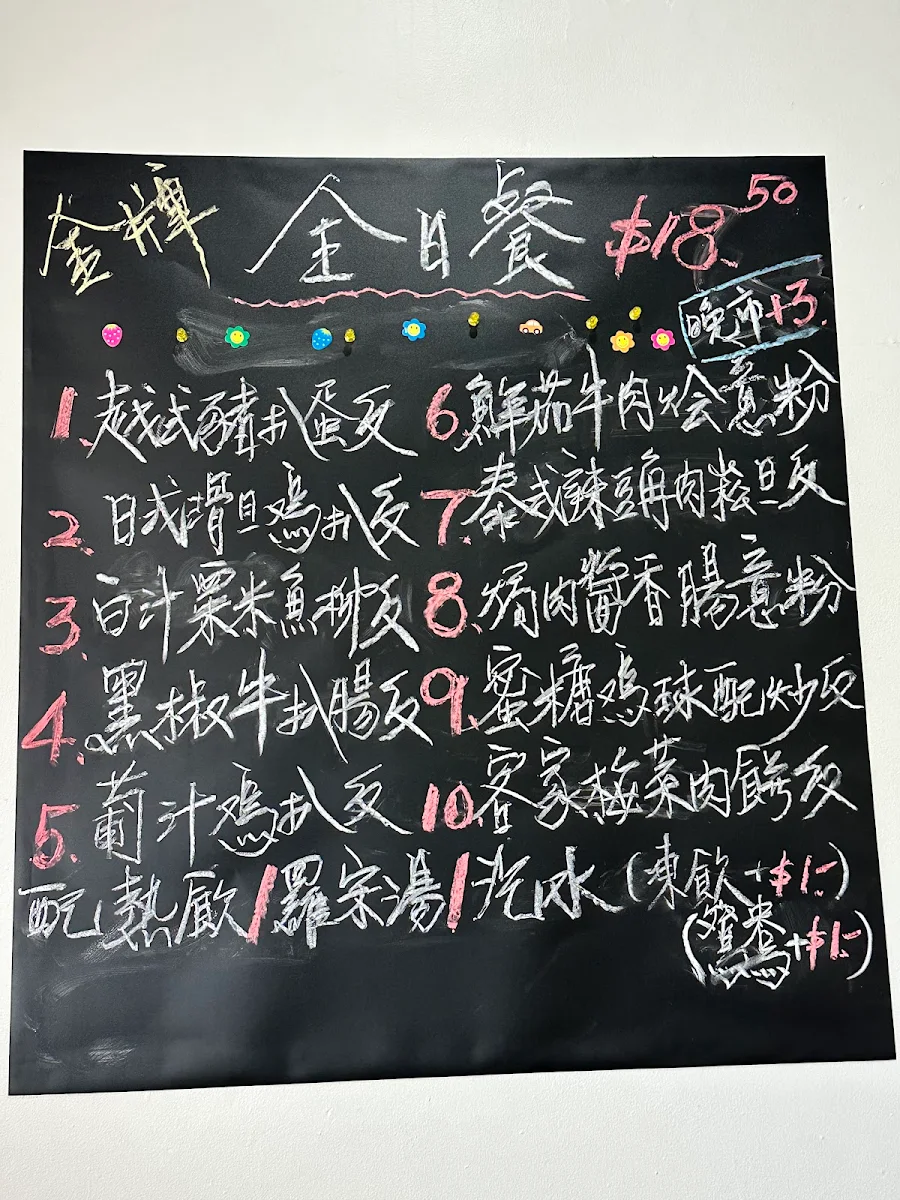 金牌 全日餐 $18.50
晚市+3.
1. 越式豬扒蛋反
2. 日式滑旦鸡扒反
3. 白汁粟米魚柳反
4. 黑椒牛扒腸反
5. 葡汁鸡扒反
6. 鮮茄牛肉烩意粉
7. 泰式辣頭肉崧旦反
8. 焗肉醬香腸意粉
9. 蜜糖鸡球配炒反
10. 客家梅菜肉餅反
配熱飲/羅宋湯/汽水(凍飲+$1.-)
(鴛鴦+$1.-)